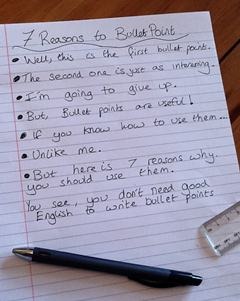 7 Reasons to Bullet Point
• Well, this is the first bullet point.
• The second one is just as interesting.
• I'm going to give up.
• But, Bullet points are useful!
• If you know how to use them...
• Unlike me.
• But here is 7 reasons why.
you should use them.
You see, you don't need good
English to write bullet points